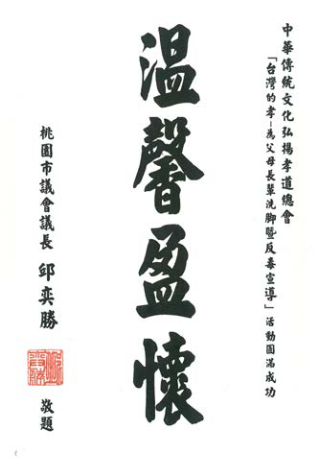 中華傳統文化弘揚孝道總會
「台灣的孝-為父母長輩洗腳暨反毒宣導」活動圓滿成功
溫馨盈懷
桃園市議會議長 邱奕勝
敬題